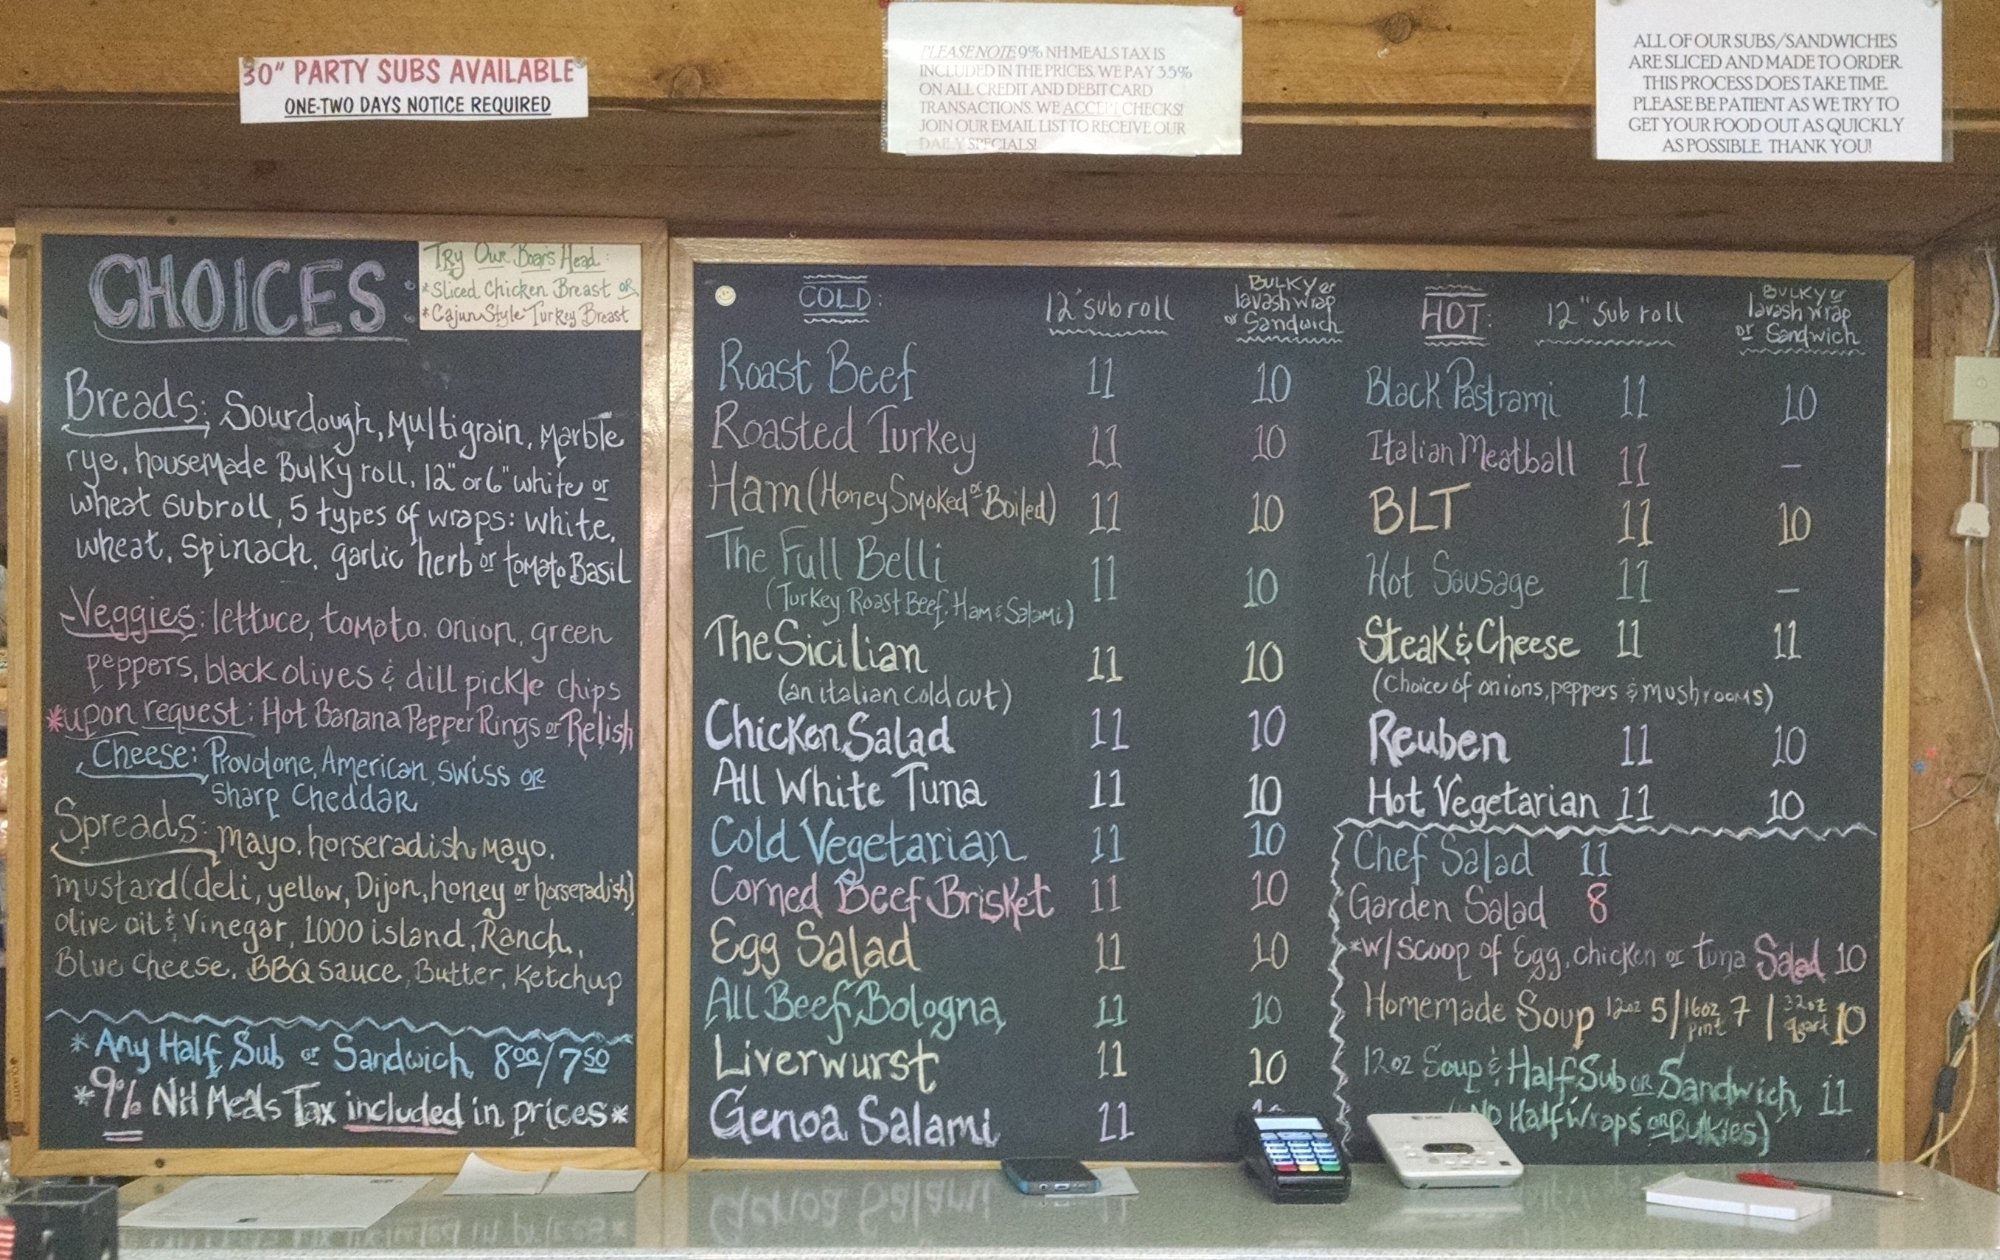 30" PARTY SUBS AVAILABLE
ONE-TWO DAYS NOTICE REQUIRED
PLEASE NOTE: 9% NH MEALS TAX IS
INCLUDED IN THE PRICES. WE PAY 3.5%
ON ALL CREDIT AND DEBIT CARD
TRANSACTIONS. WE ACCEPT CHECKS!
JOIN OUR EMAIL LIST TO RECEIVE OUR
DAILY SPECIALS!
ALL OF OUR SUBS/SANDWICHES
ARE SLICED AND MADE TO ORDER.
THIS PROCESS DOES TAKE TIME.
PLEASE BE PATIENT AS WE TRY TO
GET YOUR FOOD OUT AS QUICKLY
AS POSSIBLE. THANK YOU!
CHOICES:
Try Our Boars Head:
*Sliced Chicken Breast or
*Cajun Style Turkey Breast
Breads: Sourdough, Multigrain, Marble
rye, housemade Bulky roll, 12" or 6" white or
wheat subroll, 5 types of wraps: white,
wheat, spinach, garlic herb or tomato Basil
Veggies: lettuce, tomato, onion, green
peppers, black olives & dill pickle chips
*upon request: Hot Banana Pepper Rings or Relish
Cheese: Provolone, American, swiss or
sharp cheddar
Spreads: Mayo, horseradish mayo,
mustard (deli, yellow, Dijon, honey or horseradish)
olive oil & Vinegar, 1000 island, Ranch,
Blue cheese, BBQ sauce, Butter, Ketchup
*Any Half Sub or Sandwich 8.00/7.50
*9% NH Meals Tax included in prices*
COLD: 12" sub roll Bulky or lavash wrap or Sandwich
Roast Beef 11 10
Roasted Turkey 11 10
Ham (Honey Smoked or Boiled) 11 10
The Full Belli 11 10
(Turkey, Roast Beef, Ham & Salami)
The Sicilian 11 10
(an italian cold cut)
Chicken Salad 11 10
All White Tuna 11 10
Cold Vegetarian 11 10
Corned Beef Brisket 11 10
Egg Salad 11 10
All Beef Bologna 11 10
Liverwurst 11 10
Genoa Salami 11
HOT: 12" Sub roll Bulky or lavash wrap or Sandwich
Black Pastrami 11 10
Italian Meatball 11 –
BLT 11 10
Hot Sausage 11 –
Steak & Cheese 11 11
(choice of onions, peppers & mushrooms)
Reuben 11 10
Hot Vegetarian 11 10
Chef Salad 11
Garden Salad 8
*w/scoop of Egg, chicken or tuna Salad 10
Homemade Soup 12oz 5/16oz pint 7 | 32oz quart 10
12oz Soup & Half Sub or Sandwich 11
No Half Wraps or Bulkies)